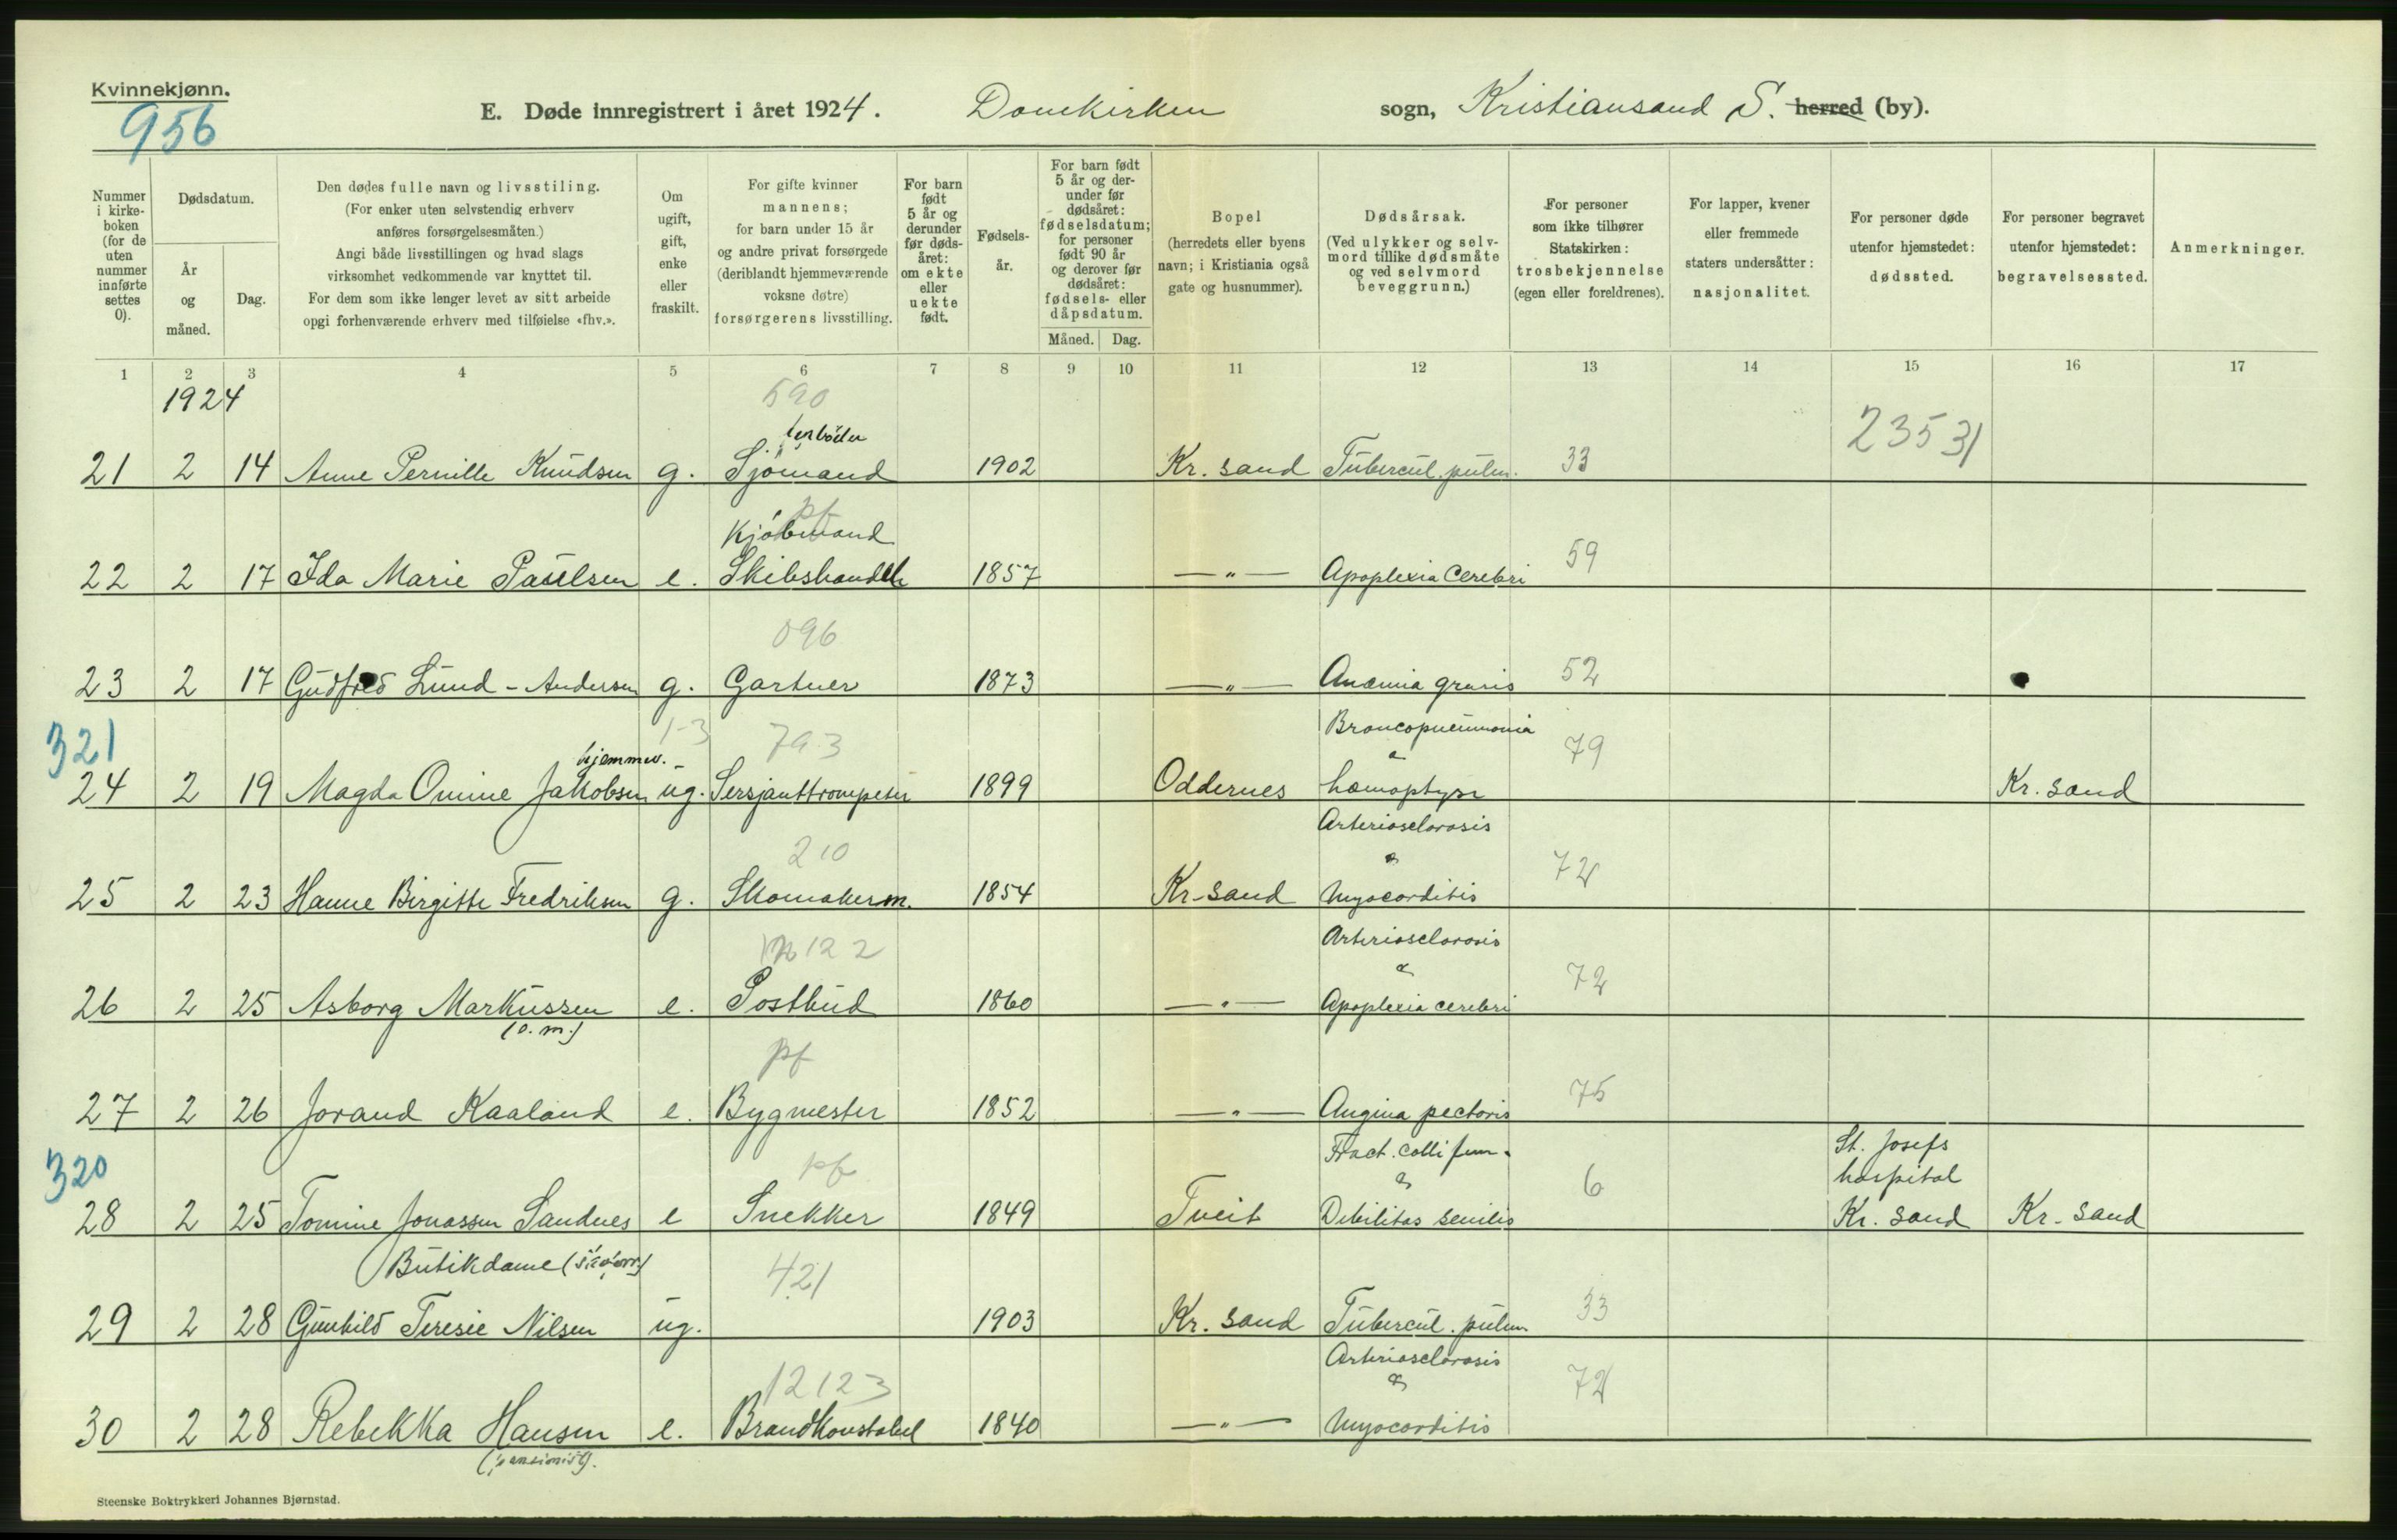 Kvinnekjønn.
956
E. Døde innregistrert i året 1924. Domkirken sogn, Kristiansand S. herred (by).
Nummer i kirke-boken (for de uten nummer innførte settes 0).
Dødsdatum.
År og måned.
Dag.
Den dødes fulle navn og livsstiling.
(For enker uten selvstendig erhverv
anføres forsørgelsesmåten.)
Angi både livsstillingen og hvad slags
virksomhet vedkommende var knyttet til.
For dem som ikke lenger levet av sitt arbeide
opgi forhenværende erhverv med tilføielse «fhv.».
Om ugift, gift, enke eller fraskilt.
For gifte kvinner
mannens;
for barn under 15 år
og andre privat forsørgede
(deriblandt hjemmeværende
voksne døtre)
forsørgerens livsstilling.
For barn født 5 år og derunder før døds-året: om ekte eller uekte født.
Fødsels-år.
For barn født 5 år og der-under før dødsåret: fødselsdatum; for personer født 90 år og derover før dødsåret: fødsels- eller dåpsdatum.
Måned. Dag.
Bopel
(herredets eller byens
navn; i Kristiania også
gate og husnummer).
Dødsårsak.
(Ved ulykker og selv-
mord tillike dødsmåte
og ved selvmord
beveggrunn.)
For personer
som ikke tilhører
Statskirken:
trosbekjennelse
(egen eller foreldrenes).
For lapper, kvener
eller fremmede
staters undersåtter:
nasjonalitet.
For personer døde
utenfor hjemstedet:
dødssted.
For personer begravet
utenfor hjemstedet:
begravelsessted.
Anmerkninger.
1 2 3 4 5 6 7 8 9 10 11 12 13 14 15 16 17
1924 590
23531
21 2 14 Anne Pernille Knudsen g. Sjömand 1902 Kr. sand Tubercul. pulm. 33
pf
Kjöbmand
22 2 17 Ida Marie Paulsen e. Skibshandler 1857 —„— Apoplexia Cerebri 59
096
23 2 17 Gudfred Lund - Andersen g. Gartner 1873 —„— Anæmia gravis 52
321 1-3 793 Broncopneumonia
hjemmev. & 79
24 2 19 Magda Omine Jakobsen ug. Sersjanttrompeter 1899 Oddernes hæmoptyse Kr. sand
210 Arteriosclerosis
& 72
25 2 23 Hanne Birgitte Fredriksen g. Skomakerm. 1854 Kr-sand Myocarditis
122 Arteriosclerosis
& 72
26 2 25 Asborg Markussen e. Postbud 1860 —„— Apoplexia cerebri
(o. m.)
pf
27 2 26 Jorand Kaaland e. Bygmester 1852 —„— Angina pectoris 75
320 pf Fract. colli fem. St. Josefs
& 6 hospital
28 2 25 Tomine Jonassen Sandnes e Snekker 1849 Tveit Debilitas senilis Kr. sand Kr. sand
Butikdame
421
29 2 28 Gunhild Teresie Nilsen ug. 1903 Kr. sand Tubercul. pulm 33
12123 Arteriosclerosis
& 72
30 2 28 Rebekka Hansen e. Brandkonstabel 1840 —„— Myocarditis
(pensionist).
Steenske Boktrykkeri Johannes Bjørnstad.